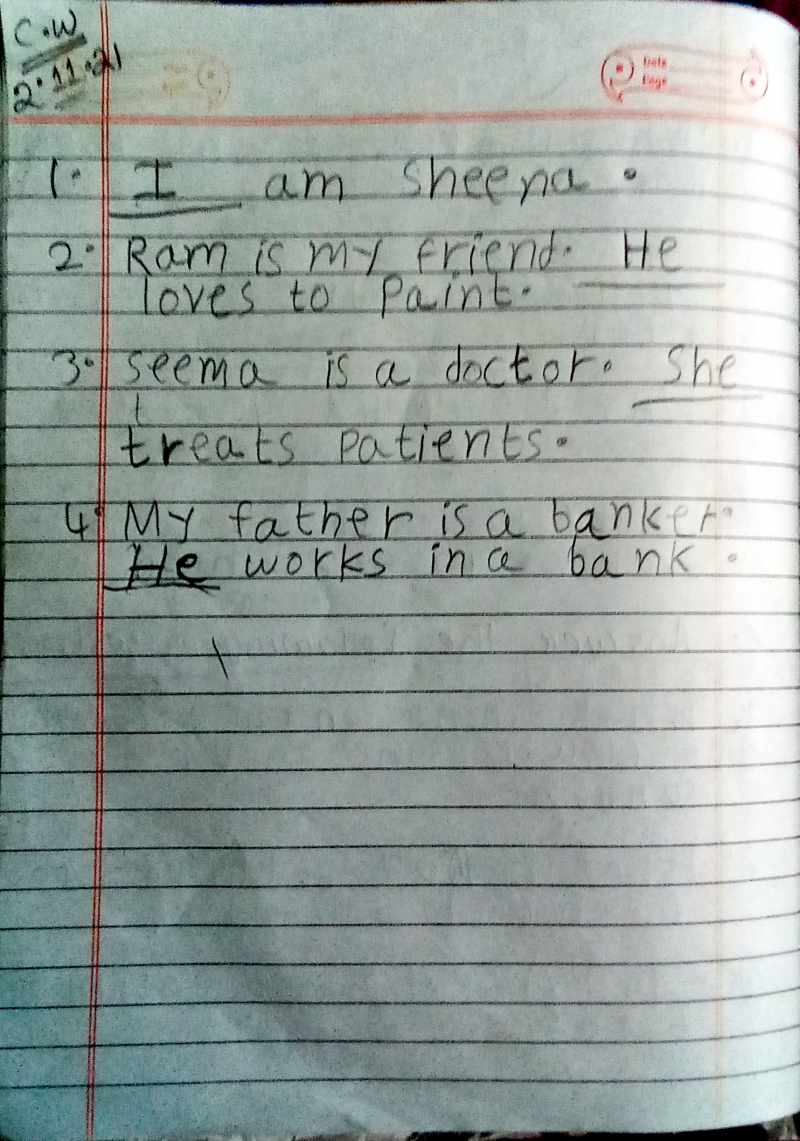 C.W
2.11.21
Date
Page
1. I am Sheena.
2. Ram is my friend. He
loves to Paint.
3. Seema is a doctor. She
treats Patients.
4. My father is a banker.
He works in a bank.